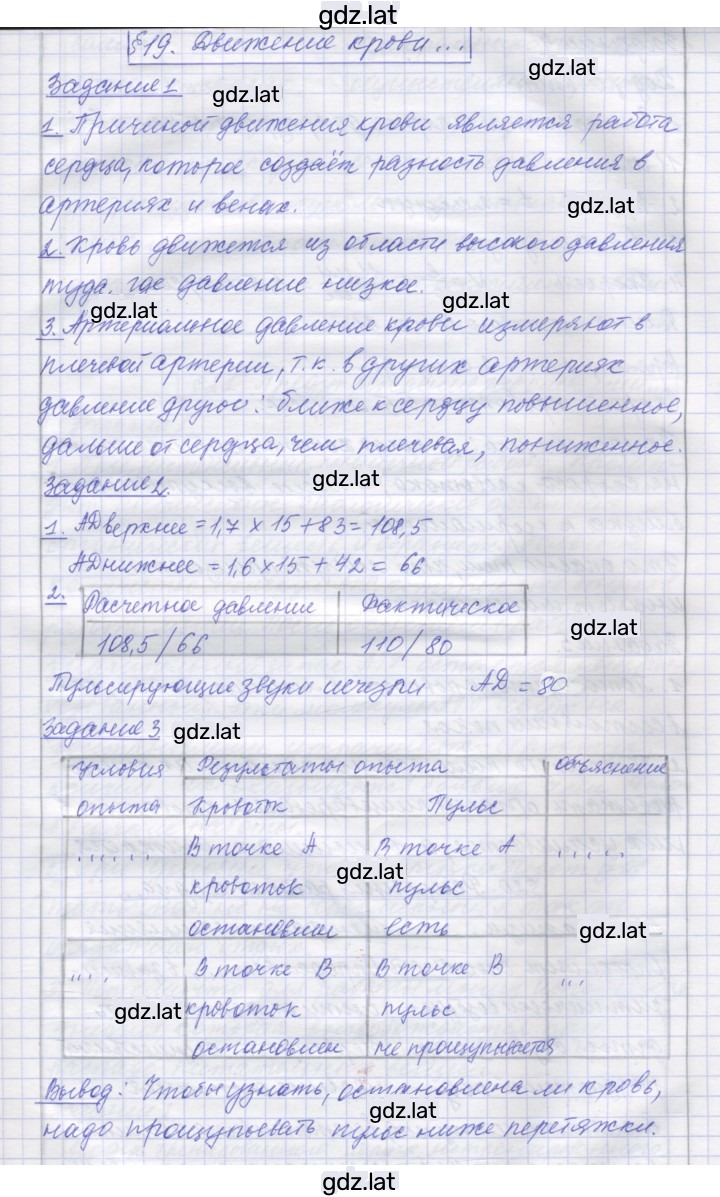 gdz.lat
§19. Движение крови...
gdz.lat
Задание 1
gdz.lat
1. Причиной движения крови является работа
сердца, которое создаёт разность давления в
артериях и венах.
gdz.lat
2. Кровь движется из области высокого давления
туда. где давление низкое.
gdz.lat
gdz.lat
3. Артериальное давление крови измеряют в
плечевой артерии, т.к. в других артериях
давление другое: ближе к сердцу повышенное,
дальше от сердца, чем плечевая, пониженное.
gdz.lat
Задание 2.
1. АД верхнее = 1,7 × 15 + 83 = 108,5
АД нижнее = 1,6 × 15 + 42 = 66
2. Расчетное давление Фактическое
gdz.lat
108,5/66 110/80
Пульсирующие звуки исчезли АД = 80
Задание 3
gdz.lat
Условия Результаты опыта Объяснение
опыта Кровоток Пульс
...... В точке А В точке А .....
gdz.lat
кровоток пульс
остановлен есть
gdz.lat
.... В точке В В точке В ...
gdz.lat
кровоток пульс
остановлен не прощупывается
Вывод: Чтобы узнать, остановлена ли кровь,
gdz.lat
надо прощупывать пульс ниже перетяжки.
gdz.lat